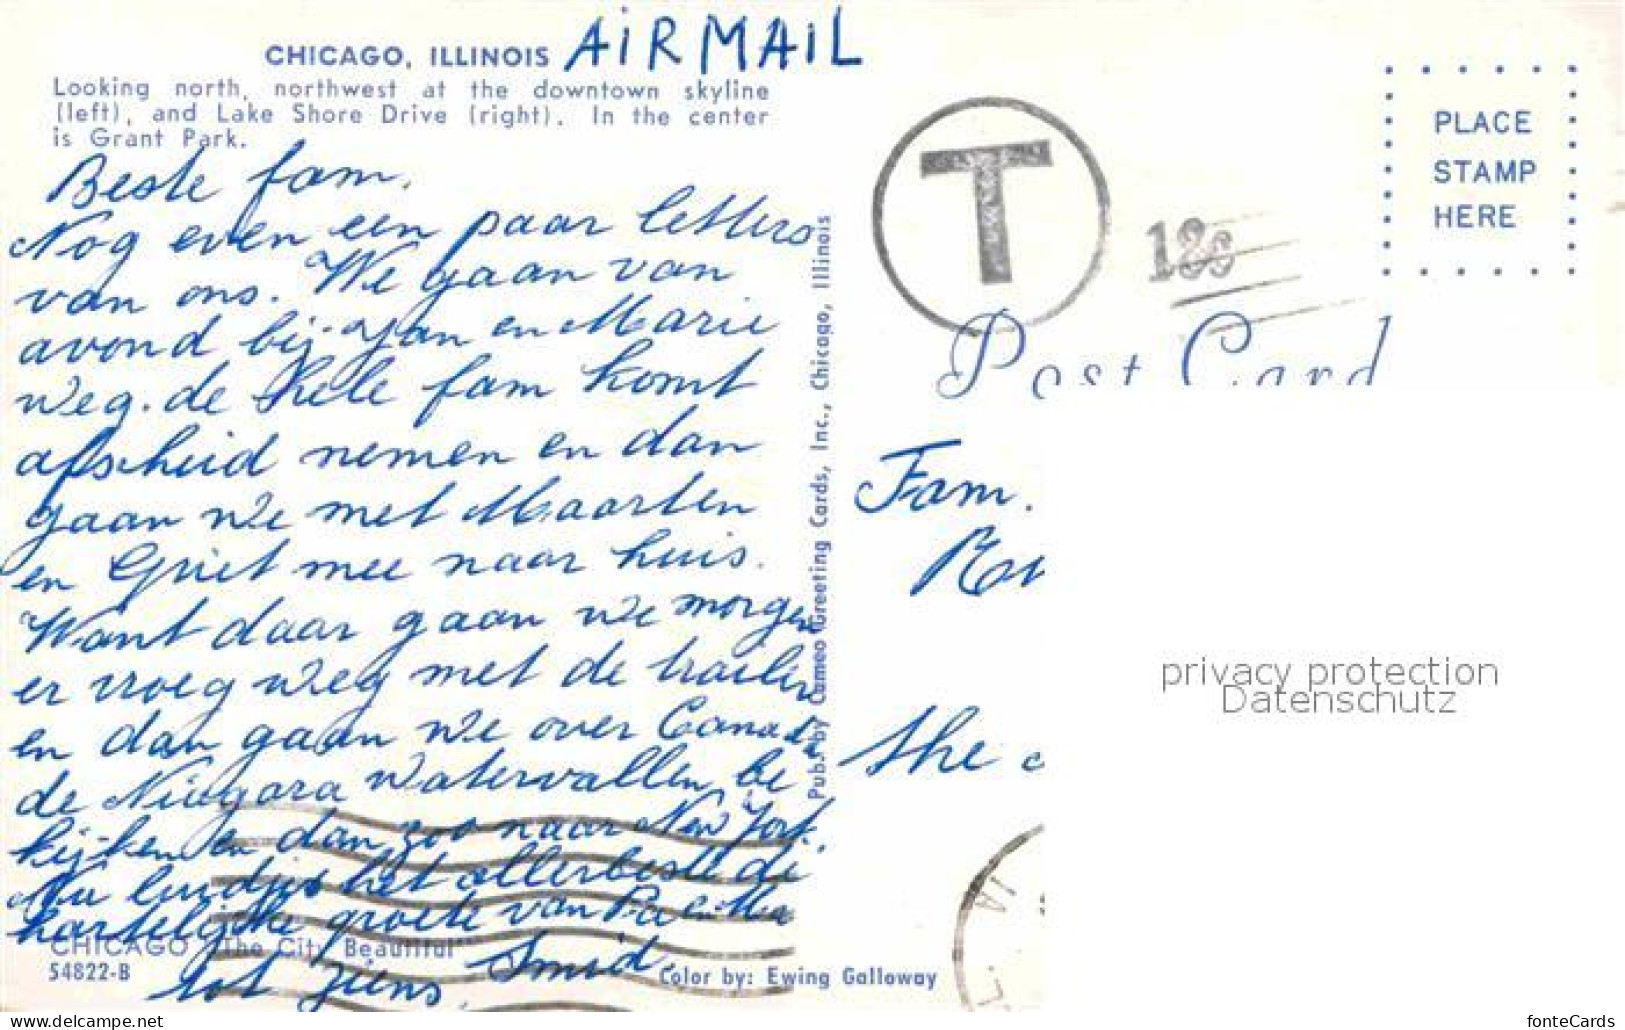 CHICAGO, ILLINOIS AiRMAiL
Looking north, northwest at the downtown skyline
(left), and Lake Shore Drive (right). In the center
is Grant Park.
Beste fam.
Nog even een paar letters
van ons. We gaan van
avond bij Jan en Marie
weg. de hele fam komt
afscheid nemen en dan
gaan we met Maarten
en Griet mee naar huis.
Want daar gaan we morgen
er vroeg weg met de trailer
en dan gaan we over Canada
de Niagara watervallen be
kijken en dan zoo naar New York.
Nu luidjes het allerbeste di
hartelijke groete van Pa en Ma
Smid.
tot ziens.
CHICAGO "The City Beautiful"
54822-B
Color by: Ewing Galloway
Pub. by Cameo Greeting Cards, Inc., Chicago, Illinois
T
PLACE
STAMP
HERE
Post Card
Fam.
the
privacy protection
Datenschutz
www.delcampe.net
fonteCards